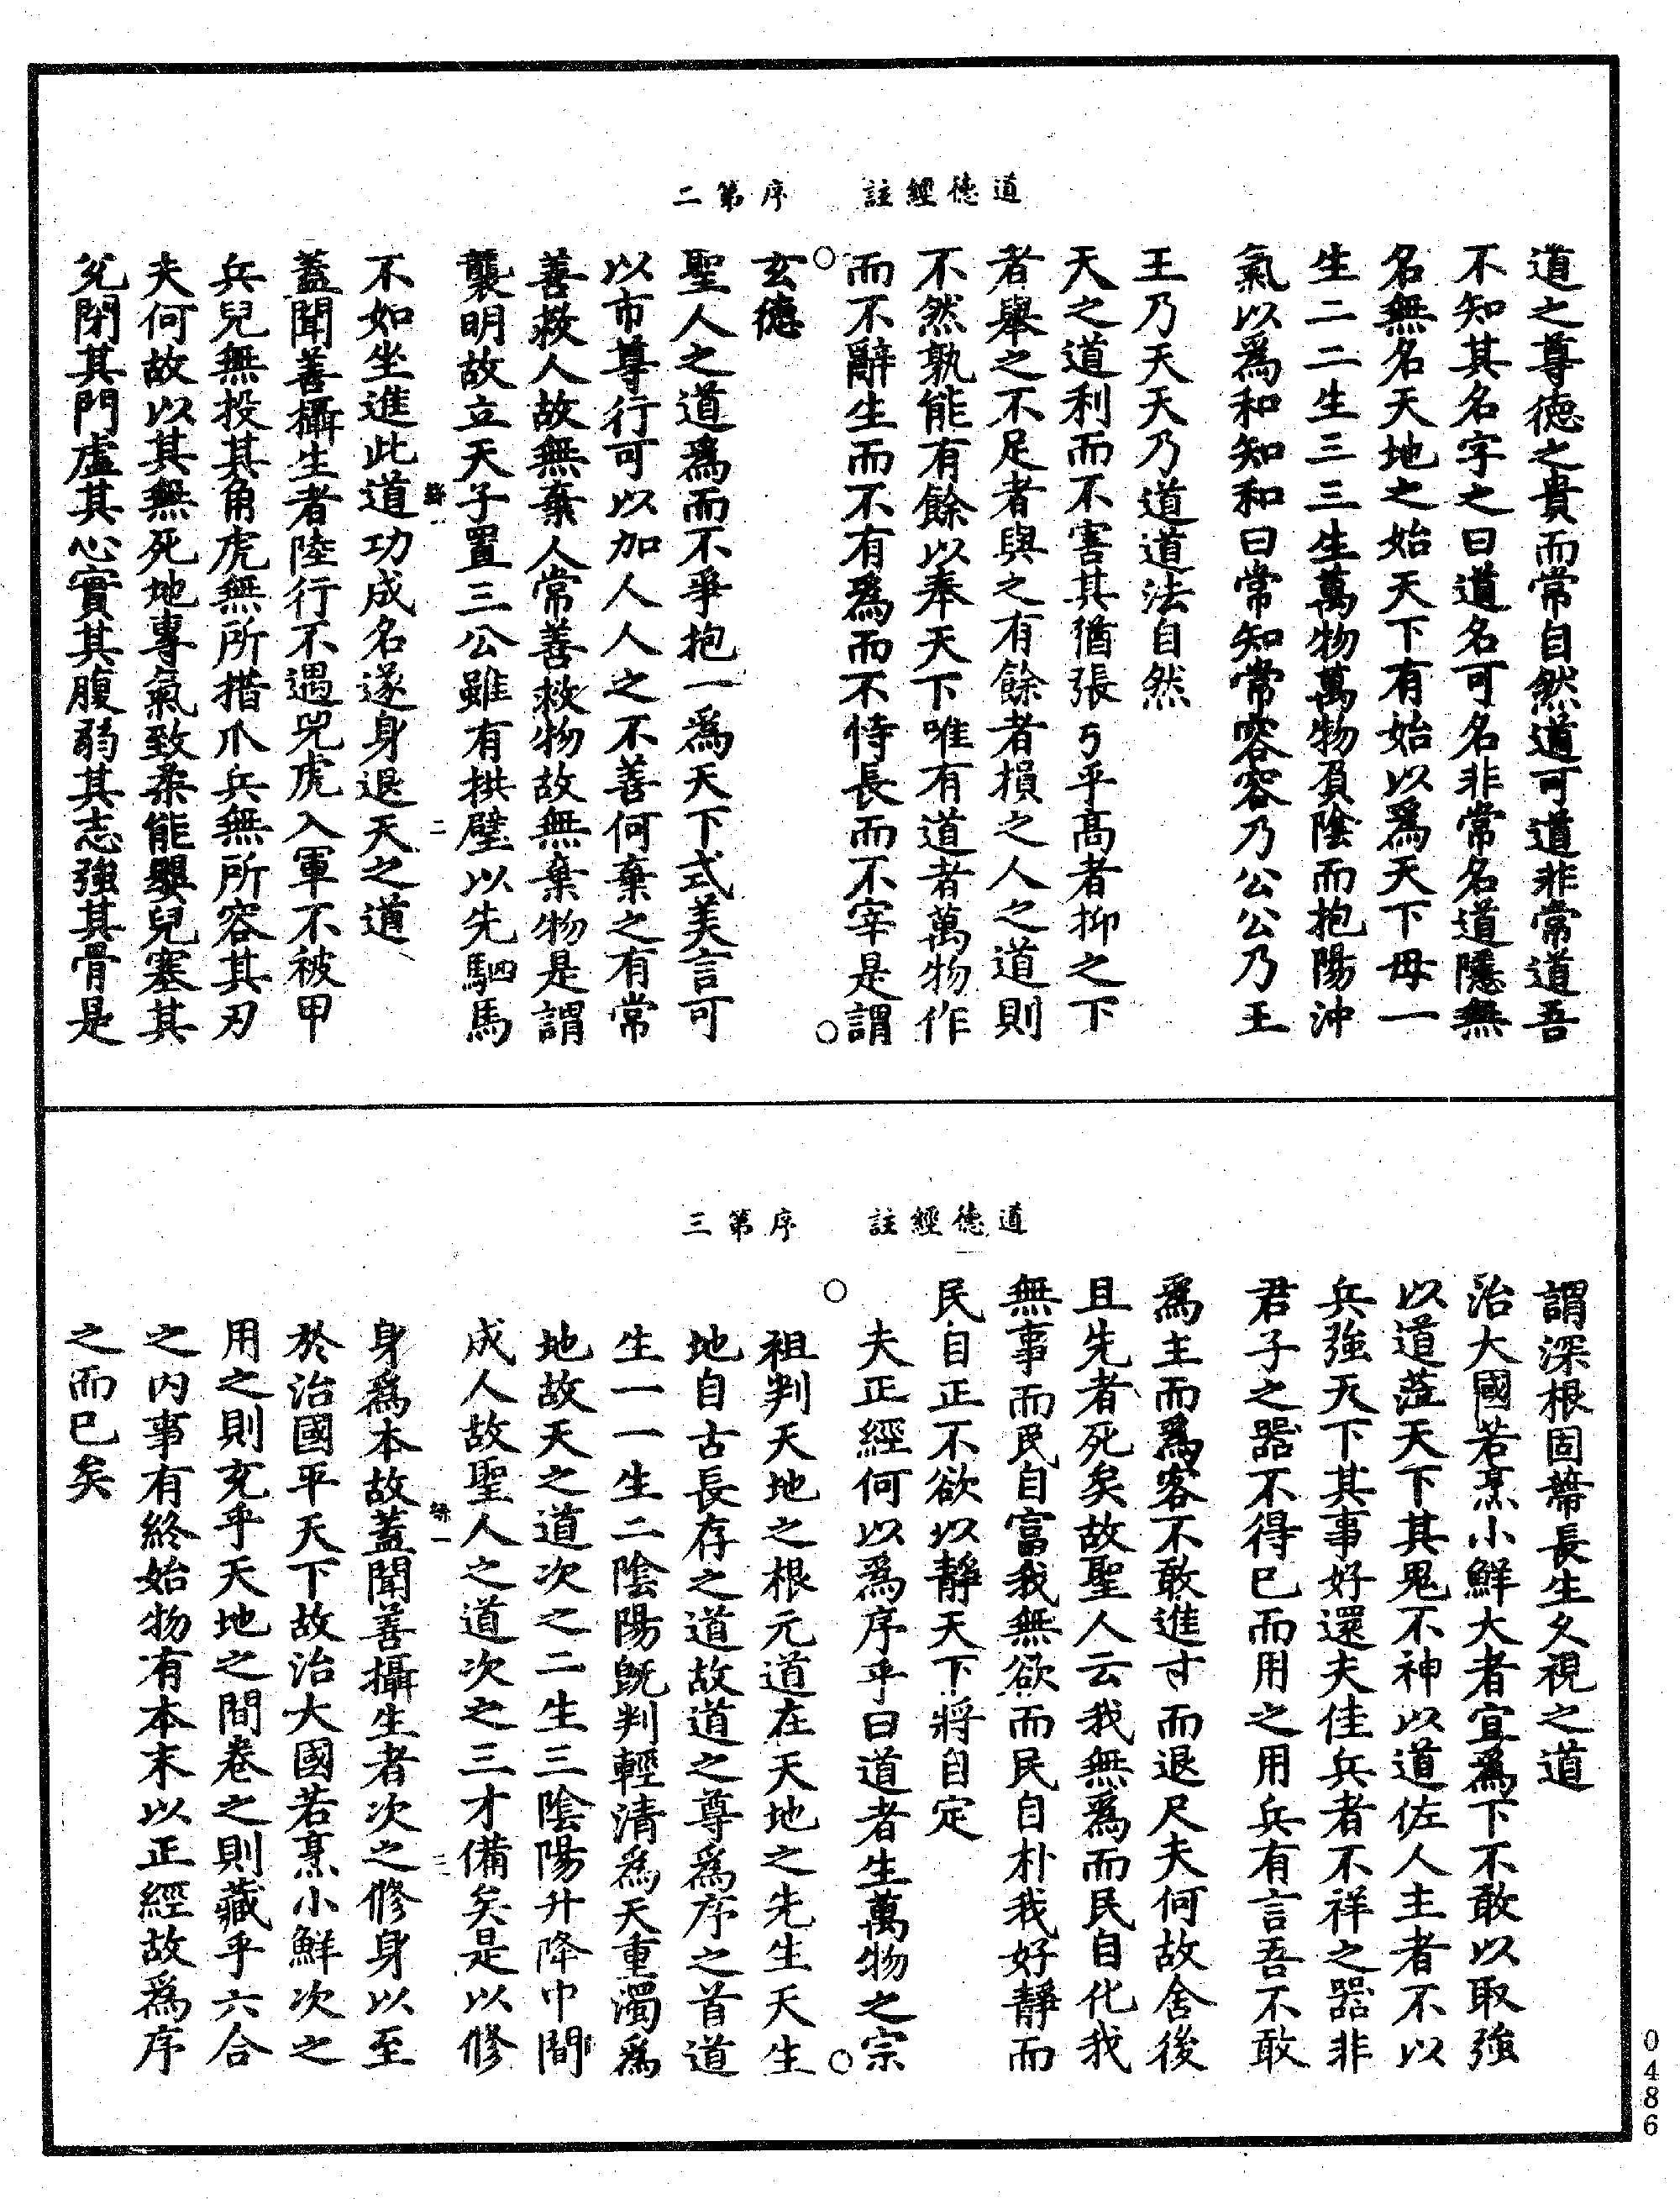 道德經註　序第二
道之尊德之貴而常自然道可道非常道吾
不知其名字之曰道名可名非常名道隱無
名無名天地之始天下有始以爲天下母一
生二二生三三生萬物萬物負陰而抱陽沖
氣以爲和知和曰常知常容容乃公公乃王
王乃天天乃道道法自然
天之道利而不害其猶張弓乎高者抑之下
者舉之不足者與之有餘者損之人之道則
不然孰能有餘以奉天下唯有道者萬物作
而不辭生而不有爲而不恃長而不宰是謂
玄德
聖人之道爲而不爭抱一爲天下式美言可
以市尊行可以加人人之不善何棄之有常
善救人故無棄人常善救物故無棄物是謂
襲明故立天子置三公雖有拱璧以先駟馬
不如坐進此道功成名遂身退天之道
蓋聞善攝生者陸行不遇兕虎入軍不被甲
兵兕無投其角虎無所措爪兵無所容其刃
夫何故以其無死地專氣致柔能嬰兒塞其
兌閉其門虛其心實其腹弱其志強其骨是
二
道德經註　序第三
謂深根固蒂長生久視之道
治大國若烹小鮮大者宜爲下不敢以取強
以道蒞天下其鬼不神以道佐人主者不以
兵強天下其事好還夫佳兵者不祥之器非
君子之器不得已而用之用兵有言吾不敢
爲主而爲客不敢進寸而退尺夫何故舍後
且先者死矣故聖人云我無爲而民自化我
無事而民自富我無欲而民自朴我好靜而
民自正不欲以靜天下將自定
夫正經何以爲序乎曰道者生萬物之宗
祖判天地之根元道在天地之先生天生
地自古長存之道故道之尊爲序之首道
生一一生二陰陽旣判輕清爲天重濁爲
地故天之道次之二生三陰陽升降中間
成人故聖人之道次之三才備矣是以修
身爲本故蓋聞善攝生者次之修身以至
於治國平天下故治大國若烹小鮮次之
用之則充乎天地之間卷之則藏乎六合
之内事有終始物有本末以正經故爲序
之而已矣
三
0486